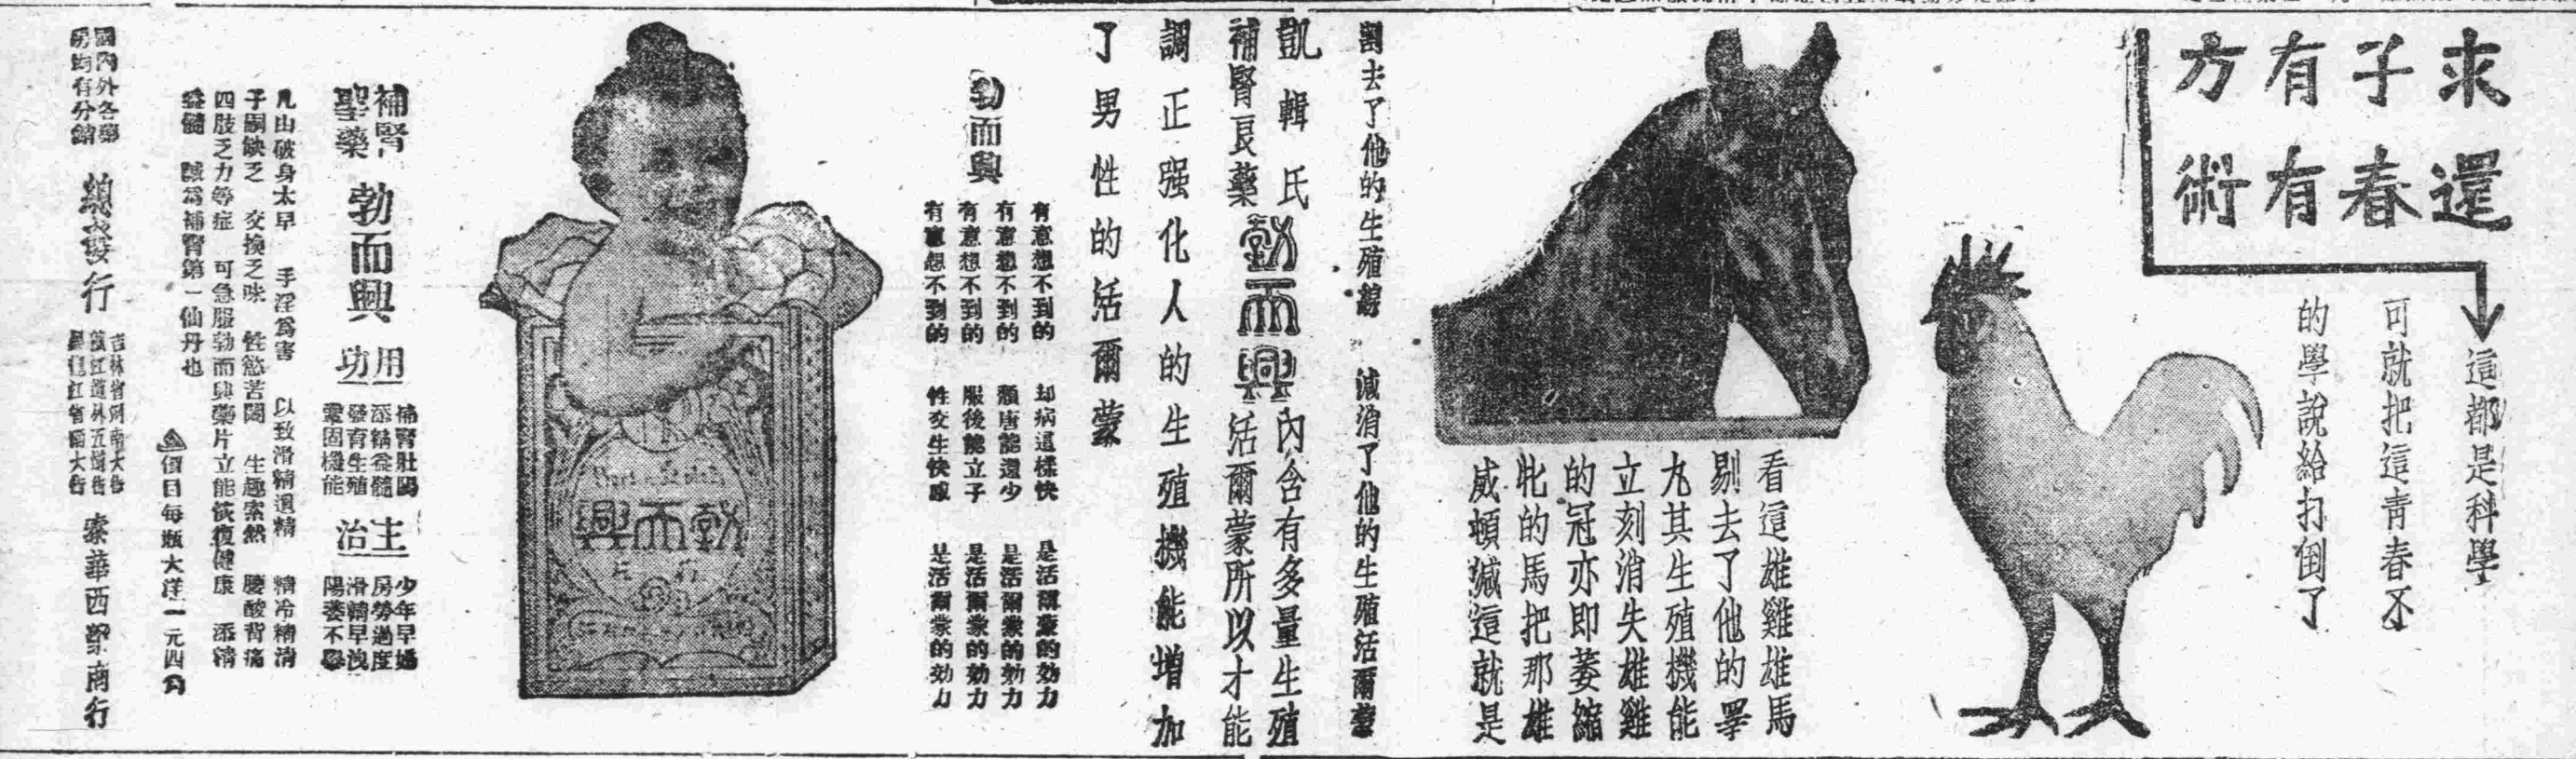 求子有方
還春有術
這都是科學
可就把這青春不
的學說給打倒了
看這雄雞雄馬
剔去了他的睪
丸其生殖機能
立刻消失雄雞
的冠亦即萎縮
牝的馬把那雄
威頓減這就是
割去了他的生殖 減消了他的生殖活爾蒙
凱輯氏
補腎良藥
勃而興
內含有多量生殖
活爾蒙所以才能
調正强化人的生殖機能增加
了男性的活爾蒙
勃而興
有意想不到的 却病這樣快 是活爾蒙的効力
有意想不到的 頹唐能還少 是活爾蒙的効力
有意想不到的 服後能立子 是活爾蒙的効力
有意想不到的 性交生快感 是活爾蒙的効力
興而勃
補腎
聖藥
勃而興
用功
補腎壯陽
添精益髓
發育生殖
靈固機能
主治
少年早婚
房勞過度
滑精早洩
陽萎不舉
凡由破身太早 手淫爲害 以致滑精遺精 精冷精清
子嗣缺乏 交換乏味 性慾苦悶 生趣索然 腰酸背痛
四肢乏力等症 可急服勃而興藥片立能恢復健康 添精
益髓 誠爲補腎第一仙丹也
價目每瓶大洋一元四角
國內外各藥
房均有分銷
總發行
吉林省河南大街
濱江道外五道街
黑龍江省南大街
索華西藥商行